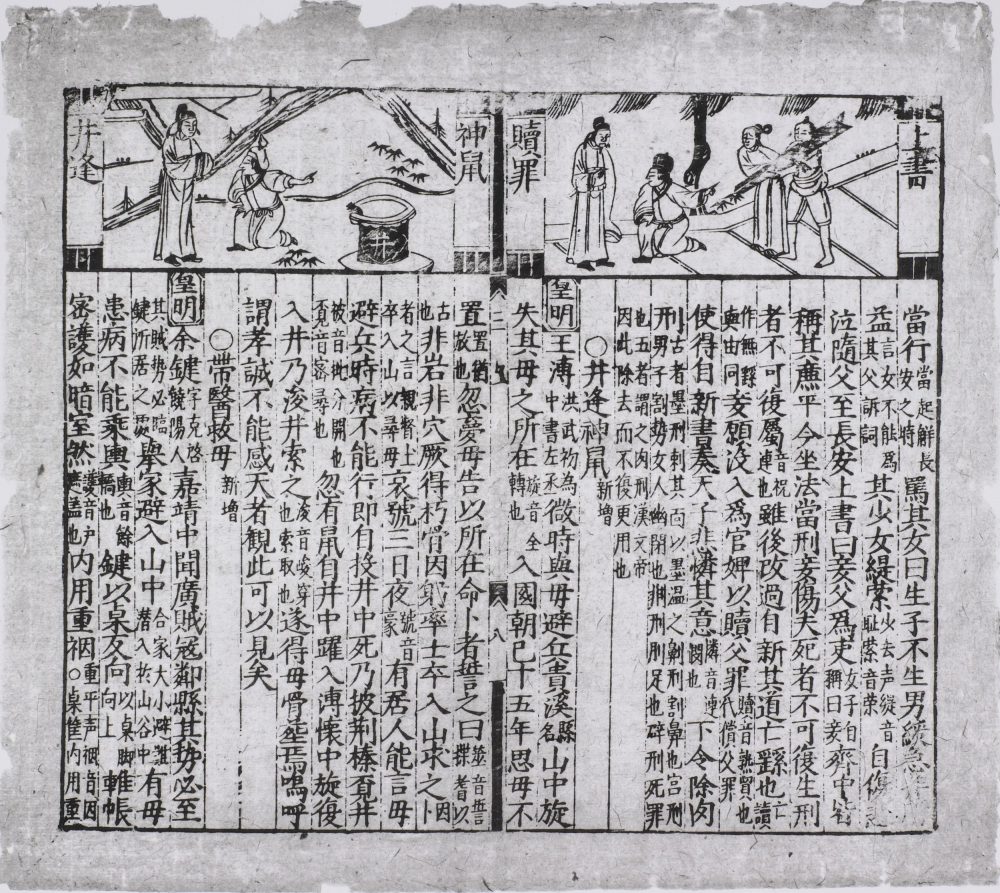 上書
贖罪
神鼠
井逢
當行當起解長安之時罵其女曰生子不生男緩急
益言女不能爲益其父訴詞其少女緹縈少去声緹音耻縈音荣自傷
泣隨父至長安上書曰妾父爲吏女子自稱曰妾齊中皆
稱其廉平今坐法當刑妾傷夫死者不可復生刑
者不可復屬音祝連也雖後改過自新其道亡繇也亡讀
作無繇與由同妾願没入爲官婢以贖父罪贖音熟貿也代償父罪
使得自新書奏天子悲憐其意憐音連憫也下令除肉
刑古者墨刑刺其面以墨湼之劓刑割鼻也宮刑男子割勢女人幽閉也剕刑刖足也辟刑死罪
也五者謂之肉刑漢文帝因此除去而不復更用也
○井逢神鼠新增
皇明王溥洪武初為中書左丞微時與母避兵貴溪縣名山中旋
失其母之所在旋音全轉也入國朝已十五年思母不
八
置置猶放也忽夢母告以所在命卜者筮之曰筮音誓揲蓍以
古也非岩非穴厥得朽骨因戢率士卒入山求之因卜
者之言親督士卒入山以尋母哀號三日夜號音豪有居人能言母
避兵時病不能行即自投井中死乃披荆榛覓井
被音批分開也覓音密尋也忽有鼠自井中躍入溥懷中旋復
入井乃浚井索之浚音峻穿也索取也遂得母骨塟焉嗚呼
謂孝誠不能感天者觀此可以見矣
○帶醫救母新增
皇明余鍵字克啓饒陽人嘉靖中聞廣賊寇鄰縣其勢必至
其賊勢必臨鍵所居之處舉家避入山中合家大小避誰潛入於山谷中有母
患病不能乘輿輿音餘轎也鍵以桌反向向上以桌脚向上帷帳
密護如暗室然護音户無盖也内用重裀重平声裀音因○桌隹内用重